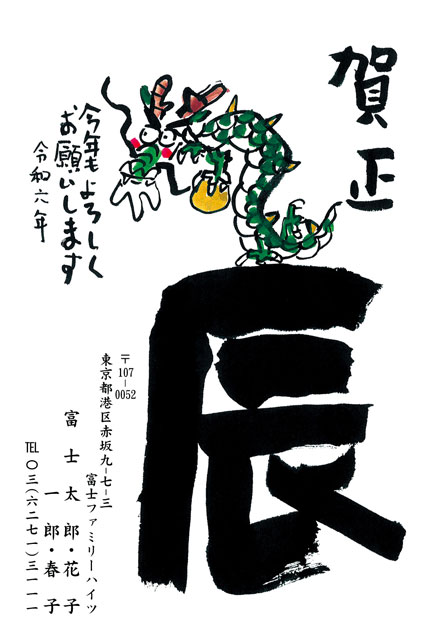 賀正
今年もよろしく
お願いします
令和六年
辰
〒107-0052
東京都港区赤坂九-七-三
富士ファミリーハイツ
富士太郎・花子
一郎・春子
TEL〇三(六二七一)三一一一